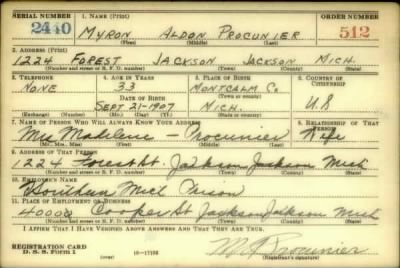 SERIAL NUMBER 1. NAME (Print) ORDER NUMBER
2440 MYRON ALDON PROCUNIER 512
(First) (Middle) (Last)
2. ADDRESS (Print)
1224 FOREST JACKSON JACKSON MICH.
(Number and street or R. F. D. number) (Town) (County) (State)
3. TELEPHONE 4. AGE IN YEARS 5. PLACE OF BIRTH 6. COUNTRY OF CITIZENSHIP
NONE 33 MONTCALM Co.
DATE OF BIRTH (Town or county)
SEPT 21-1907 MICH. U S
(Exchange) (Number) (Mo.) (Day) (Yr.) (State or country)
7. NAME OF PERSON WHO WILL ALWAYS KNOW YOUR ADDRESS 8. RELATIONSHIP OF THAT PERSON
Mrs Madeline - Procunier Wife
(Mr., Mrs., Miss) (First) (Middle) (Last)
9. ADDRESS OF THAT PERSON
1224 Forest St. Jackson Jackson Mich
(Number and street or R. F. D. number) (Town) (County) (State)
10. EMPLOYER'S NAME
Southern Mich Prison
11. PLACE OF EMPLOYMENT OR BUSINESS
4000 Cooper St Jackson Jackson Mich
(Number and street or R. F. D. number) (Town) (County) (State)
I AFFIRM THAT I HAVE VERIFIED ABOVE ANSWERS AND THAT THEY ARE TRUE.
REGISTRATION CARD
D. S. S. Form 1 M A Procunier
(Registrant's signature)